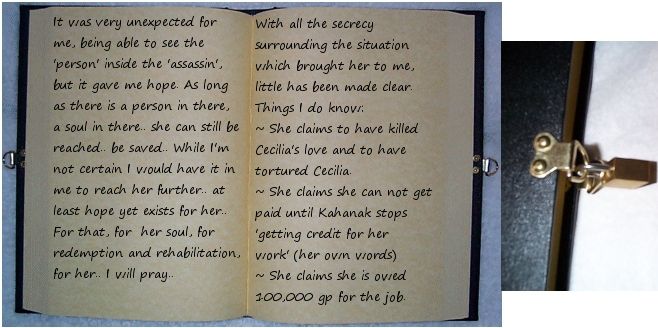 It was very unexpected for
me, being able to see the
'person' inside the 'assassin',
but it gave me hope. As long
as there is a person in there,
a soul in there.. she can still be
reached.. be saved.. While I'm
not certain I would have it in
me to reach her further.. at
least hope yet exists for her..
For that, for her soul, for
redemption and rehabilitation,
for her.. I will pray..
With all the secrecy
surrounding the situation
which brought her to me,
little has been made clear.
Things I do know:
~ She claims to have killed
Cecilia's love and to have
tortured Cecilia.
~ She claims she can not get
paid until Kahanak stops
'getting credit for her
work' (her own words)
~ She claims she is owed
100,000 gp for the job.